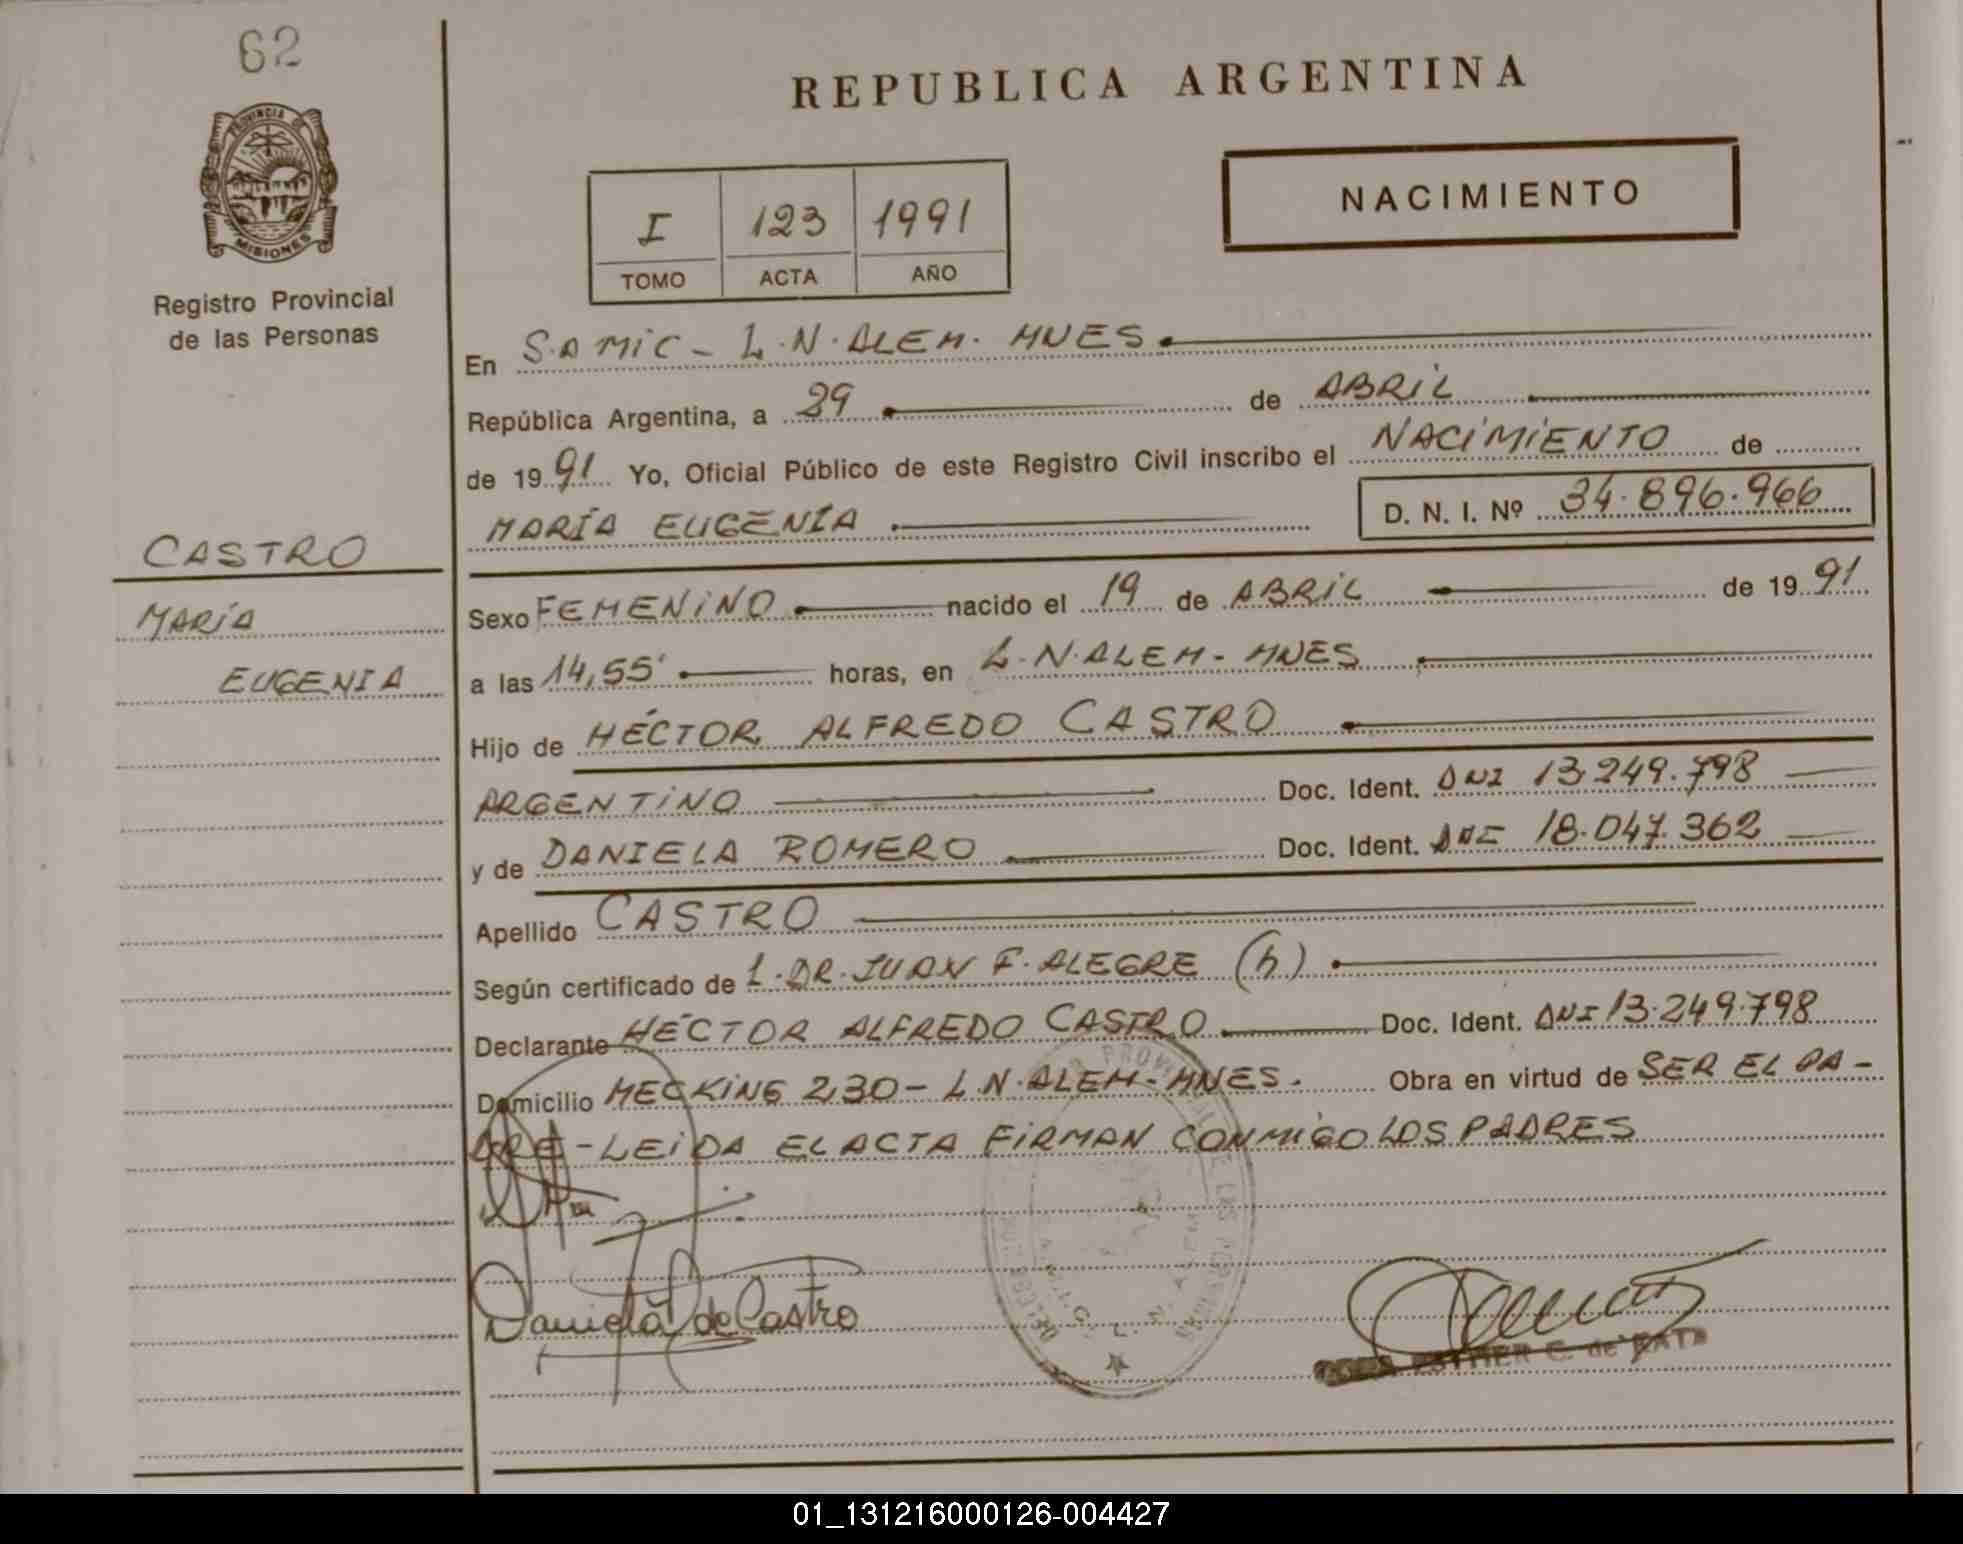 62
PROVINCIA DE
MISIONES
Registro Provincial
de las Personas
CASTRO
MARÍA
EUGENIA
REPUBLICA ARGENTINA
I 123 1991
TOMO ACTA AÑO
NACIMIENTO
En S.A MIC - L.N.ALEM. MNES
República Argentina, a 29 de ABRIL
de 19 91 Yo, Oficial Público de este Registro Civil inscribo el NACIMIENTO de
MARÍA EUGENIA D. N. I. Nº 34.896.966
Sexo FEMENINO nacido el 19 de ABRIL de 19 91
a las 14,55' horas, en L.N.ALEM - MNES
Hijo de HÉCTOR ALFREDO CASTRO
ARGENTINO Doc. Ident. DNI 13.249.798
y de DANIELA ROMERO Doc. Ident. DNI 18.047.362
Apellido CASTRO
Según certificado de L. DR. JUAN F. ALEGRE (h)
Declarante HÉCTOR ALFREDO CASTRO Doc. Ident. DNI 13.249.798
Domicilio MECKING 230 - L.N.ALEM - MNES. Obra en virtud de SER EL PA-
DRE - LEIDA EL ACTA FIRMAN CONMIGO LOS PADRES
Daniela de Castro
ESTHER C. de
01_131216000126-004427